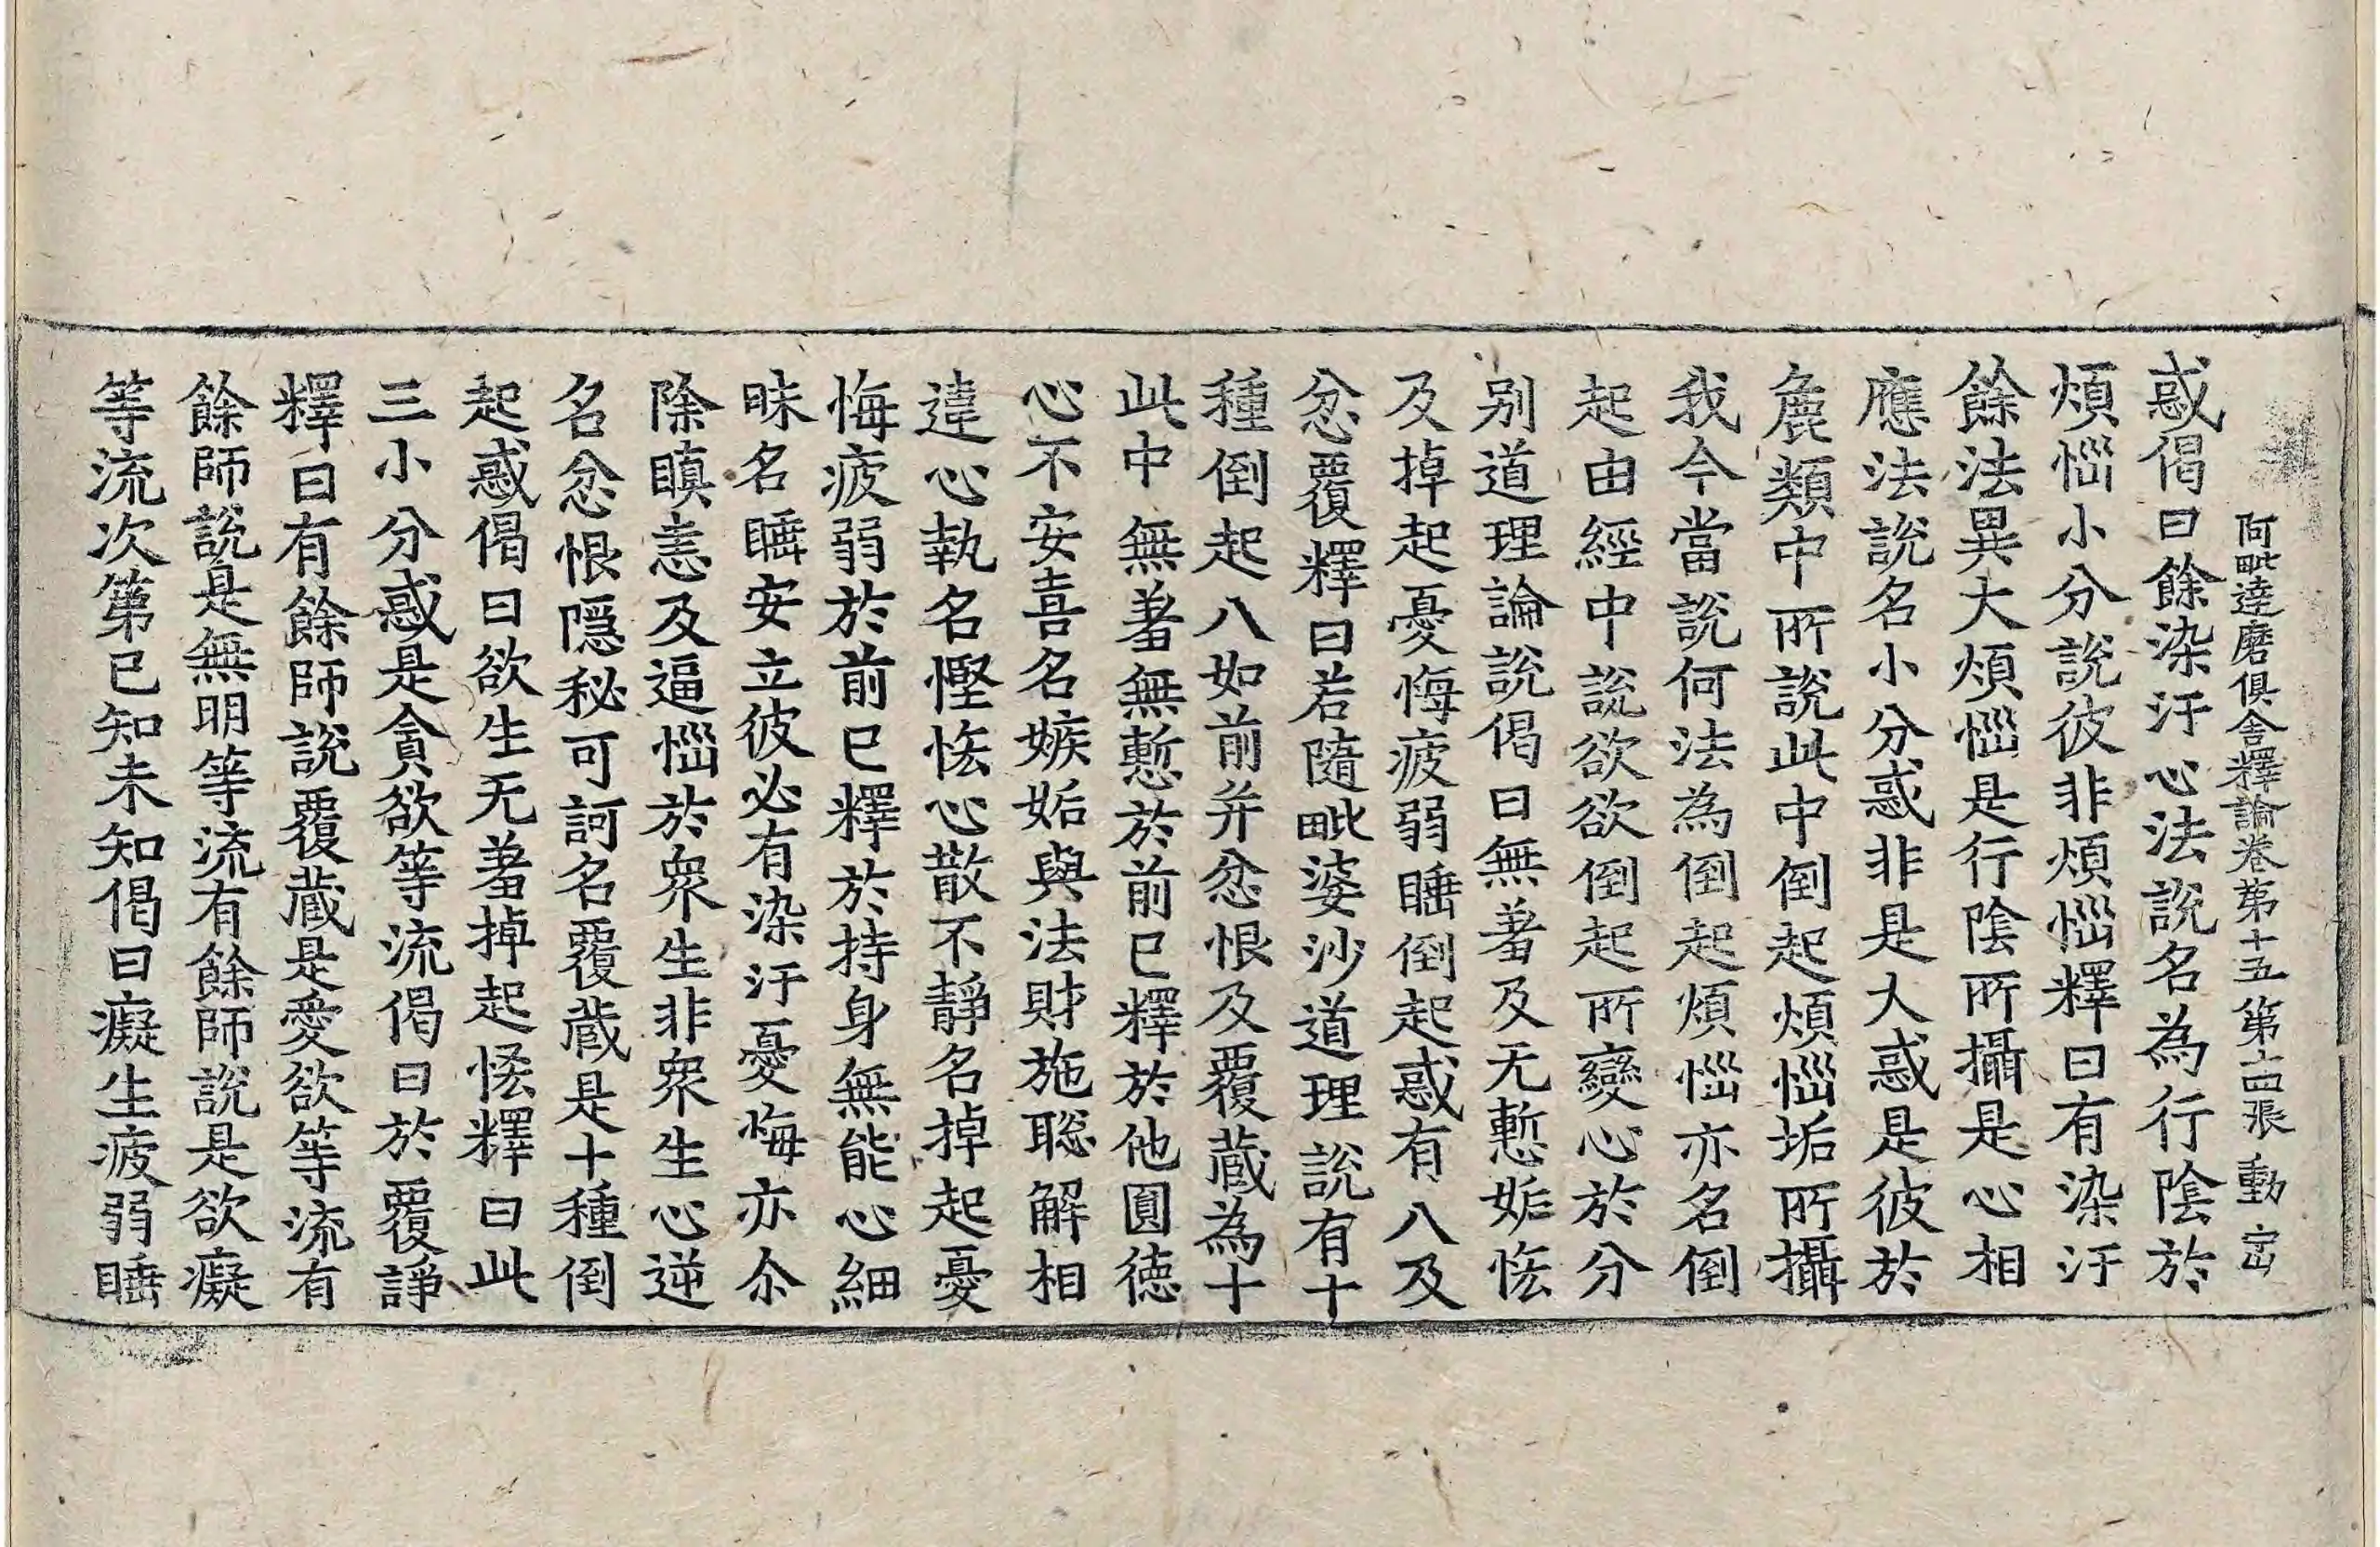 阿毗達磨俱舍釋論卷第十五 第十四張 動
惑偈曰餘染汙心法説名為行陰於
煩惱小分説彼非煩惱釋曰有染汙
餘法異大煩惱是行陰所攝是心相
應法説名小分惑非是大惑是彼於
麁類中所説此中倒起煩惱垢所攝
我今當説何法為倒起煩惱亦名倒
起由經中説欲欲倒起所變心於分
别道理論説偈曰無羞及无慙姤悋
及掉起憂悔疲弱睡倒起惑有八及
忿覆釋曰若隨毗婆沙道理説有十
種倒起八如前并忿恨及覆蔵為十
此中無羞無慙於前已釋於他圓德
心不安喜名嫉姤與法財施聡解相
違心執名慳悋心散不靜名掉起憂
悔疲弱於前已釋於持身無能心細
昧名睡安立彼必有染汙憂悔亦尒
除瞋恚及逼惱於衆生非衆生心逆
名忿恨隱秘可訶名覆蔵是十種倒
起惑偈曰欲生无羞掉起悋釋曰此
三小分惑是貪欲等流偈曰於覆諍
釋曰有餘師説覆蔵是愛欲等流有
餘師説是無明等流有餘師説是欲癡
等流次第已知未知偈曰癡生疲弱睡